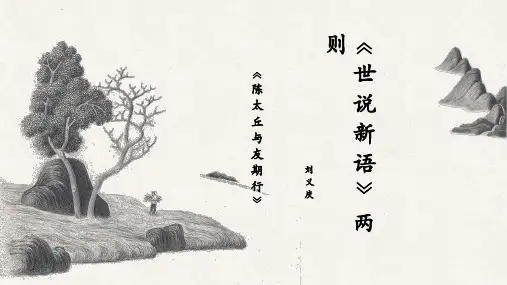 《世说新语》两
则
刘义庆
《陈太丘与友期行》